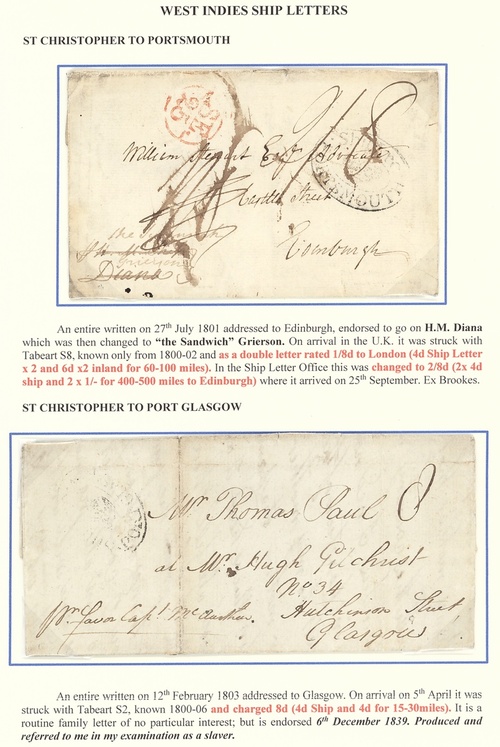 WEST INDIES SHIP LETTERS
ST CHRISTOPHER TO PORTSMOUTH
William Stewart Esqr Advocate
Castle Street
Edinburgh
the Sandwich
Grierson
Diana
An entire written on 27th July 1801 addressed to Edinburgh, endorsed to go on H.M. Diana
which was then changed to "the Sandwich" Grierson. On arrival in the U.K. it was struck with
Tabeart S8, known only from 1800-02 and as a double letter rated 1/8d to London (4d Ship Letter
x 2 and 6d x2 inland for 60-100 miles). In the Ship Letter Office this was changed to 2/8d (2x 4d
ship and 2 x 1/- for 400-500 miles to Edinburgh) where it arrived on 25th September. Ex Brookes.
ST CHRISTOPHER TO PORT GLASGOW
Mr Thomas Paul 8
at Mr Hugh Gilchrist
No 34
Hutchinson Street
Glasgow
Pr favor Capt McArthur
An entire written on 12th February 1803 addressed to Glasgow. On arrival on 5th April it was
struck with Tabeart S2, known 1800-06 and charged 8d (4d Ship and 4d for 15-30miles). It is a
routine family letter of no particular interest; but is endorsed 6th December 1839. Produced and
referred to me in my examination as a slaver.